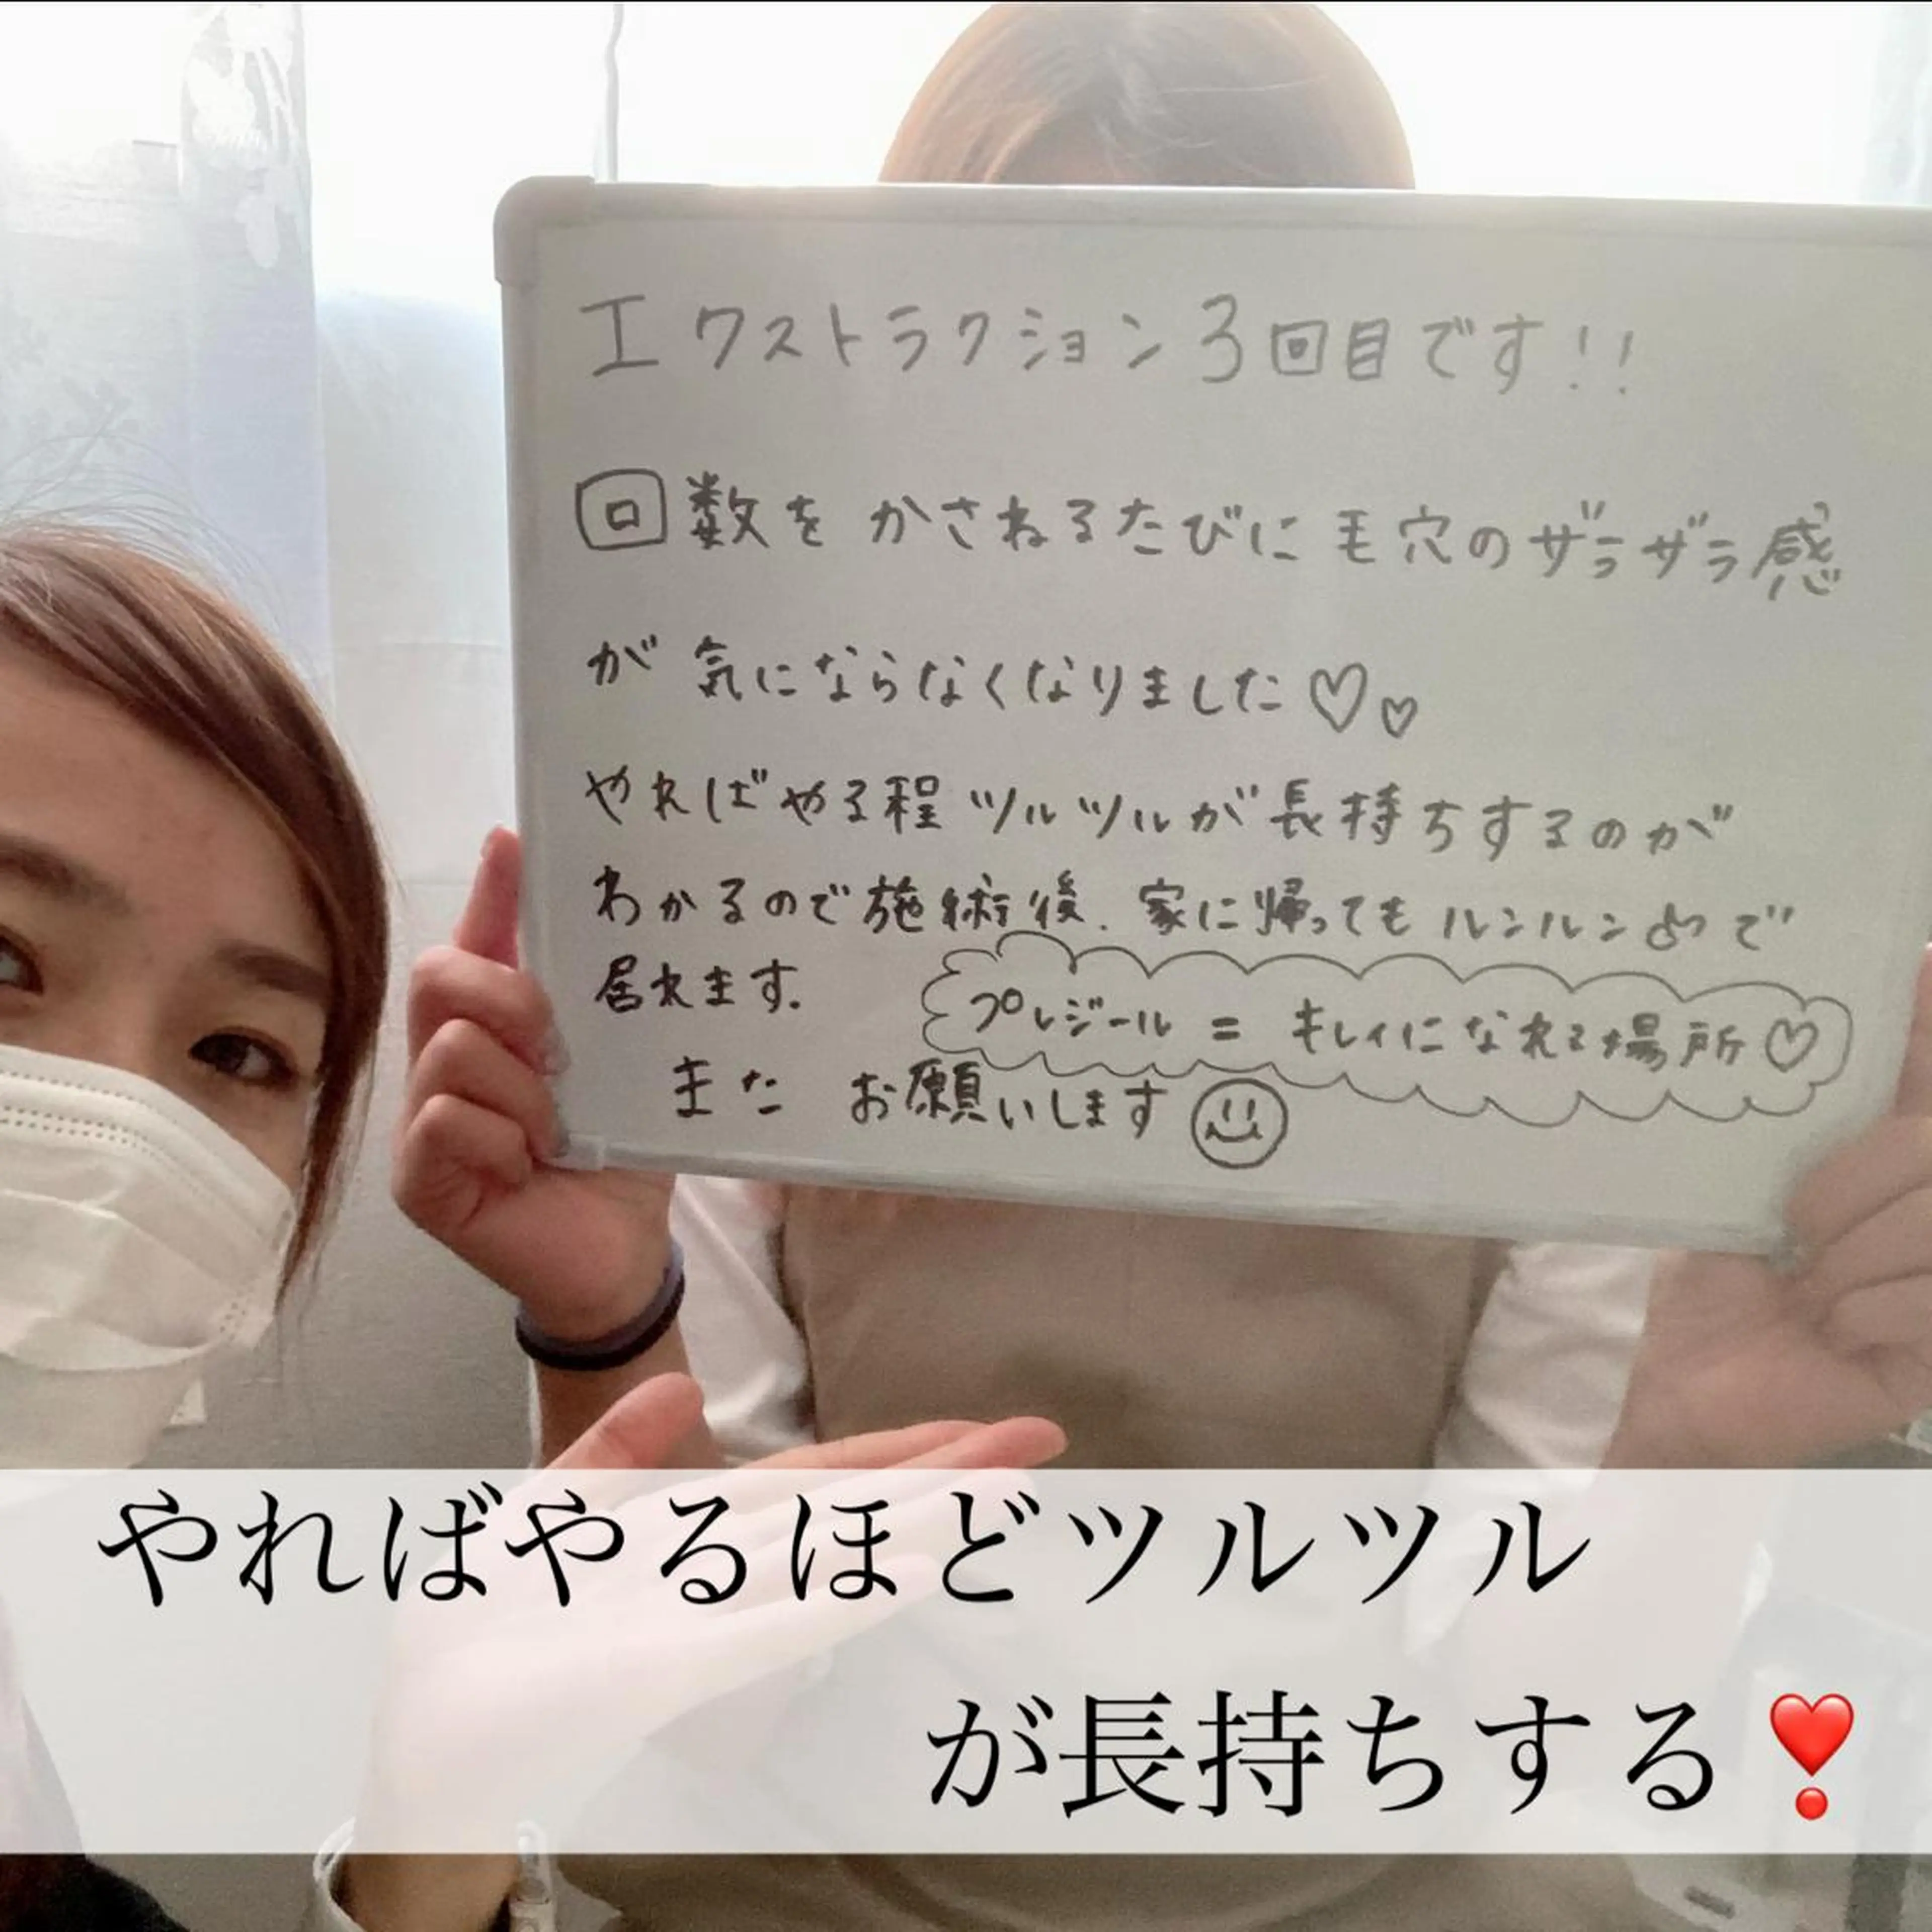 エクストラクション3回目です!!
回数をかさねるたびに毛穴のザラザラ感
が気にならなくなりました♡♡
やればやる程ツルツルが長持ちするのが
わかるので施術後、家に帰ってもルンルンで
居れます。
プレジール=キレイになれる場所♡
またお願いします
やればやるほどツルツル
が長持ちする❣